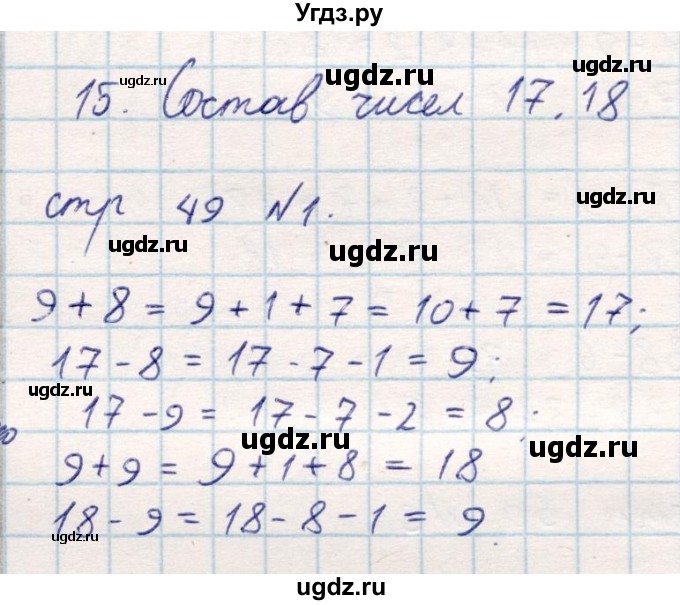 Угдз.ру
ugdz.ru
ugdz.ru
ugdz.ru
15. Состав чисел 17, 18
ugdz.ru
стр 49 №1.
ugdz.ru
ugdz.ru
9 + 8 = 9 + 1 + 7 = 10 + 7 = 17;
17 - 8 = 17 - 7 - 1 = 9;
ugdz.ru
17 - 9 = 17 - 7 - 2 = 8.
ugdz.ru
ugdz.ru
9 + 9 = 9 + 1 + 8 = 18
18 - 9 = 18 - 8 - 1 = 9
ugdz.ru
ugdz.ru